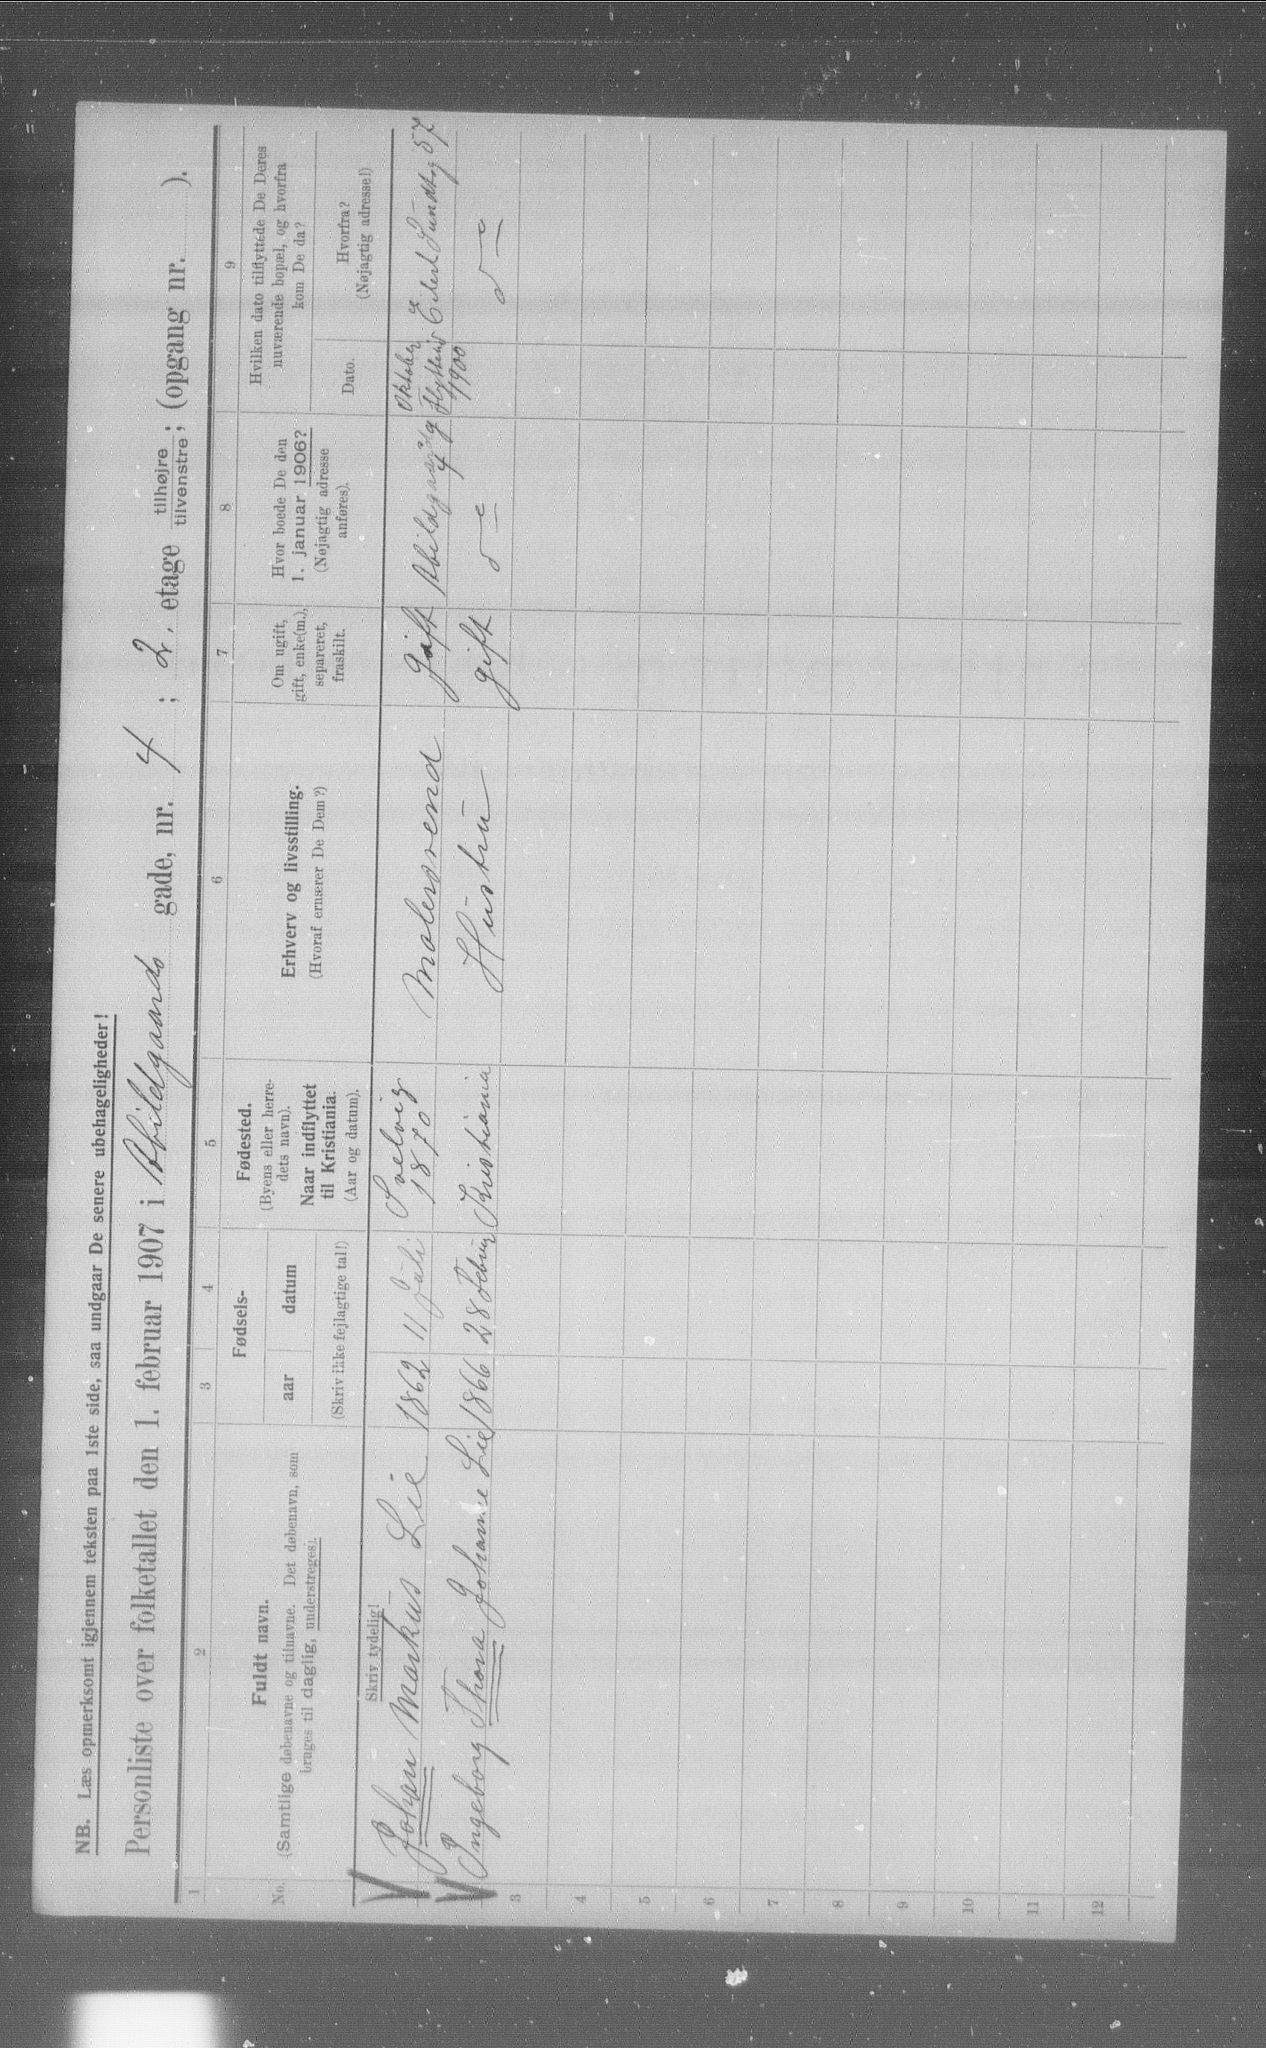 NB. Læs opmerksomt igjennem teksten paa 1ste side, saa undgaar De senere ubehageligheder!
Personliste over folketallet den 1. februar 1907 i Abildgaards gade, nr. 4; 2. etage tilhøjre / tilvenstre; (opgang nr. ).
1 2 3 4 5 6 7 8 9
No.
Fuldt navn.
(Samtlige døbenavne og tilnavne. Det døbenavn, som
bruges til daglig, understreges).
Skriv tydelig!
Fødsels-
aar datum
(Skriv ikke fejlagtige tal!)
Fødested.
(Byens eller herre-
dets navn).
Naar indflyttet
til Kristiania.
(Aar og datum).
Erhverv og livsstilling.
(Hvoraf ernærer De Dem?)
Om ugift,
gift, enke(m.),
separeret,
fraskilt.
Hvor boede De den
1. januar 1906?
(Nøjagtig adresse
anføres).
Hvilken dato tilflyttede De Deres
nuværende bopæl, og hvorfra
kom De da?
Dato.
Hvorfra?
(Nøjagtig adresse!)
Johan Markus Lie 1862 11 Juli Svelvig 1870 Malersvend gift Abildgaardsg 4 Oktober 1900 Eilert Sundtsg 57
Ingeborg Thora Johanne Lie 1866 28 Februar Kristiania Hustru gift do do
3
4
5
6
7
8
9
10
11
12